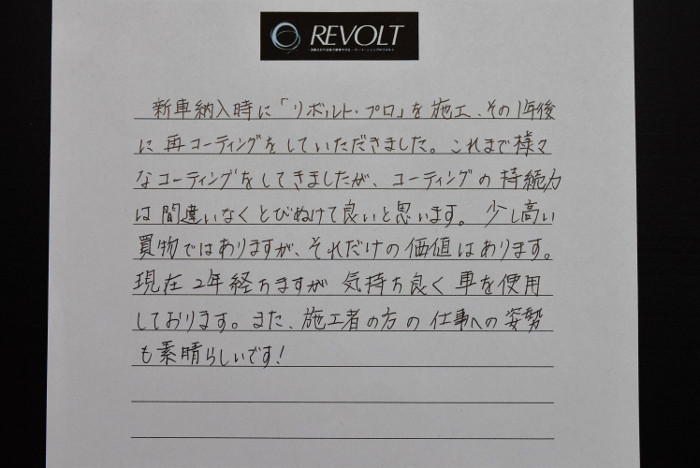 REVOLT
新車納入時に「リボルト・プロ」を施工、その1年後
に再コーティングをしていただきました。これまで様々
なコーティングをしてきましたが、コーティングの持続力
は間違いなくとびぬけて良いと思います。少し高い
買物ではありますが、それだけの価値はあります。
現在2年経ちますが気持ち良く車を使用
しております。また、施工者の方の仕事への姿勢
も素晴らしいです!